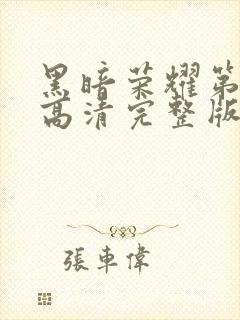 黑暗荣耀第
高清完整版
張車偉